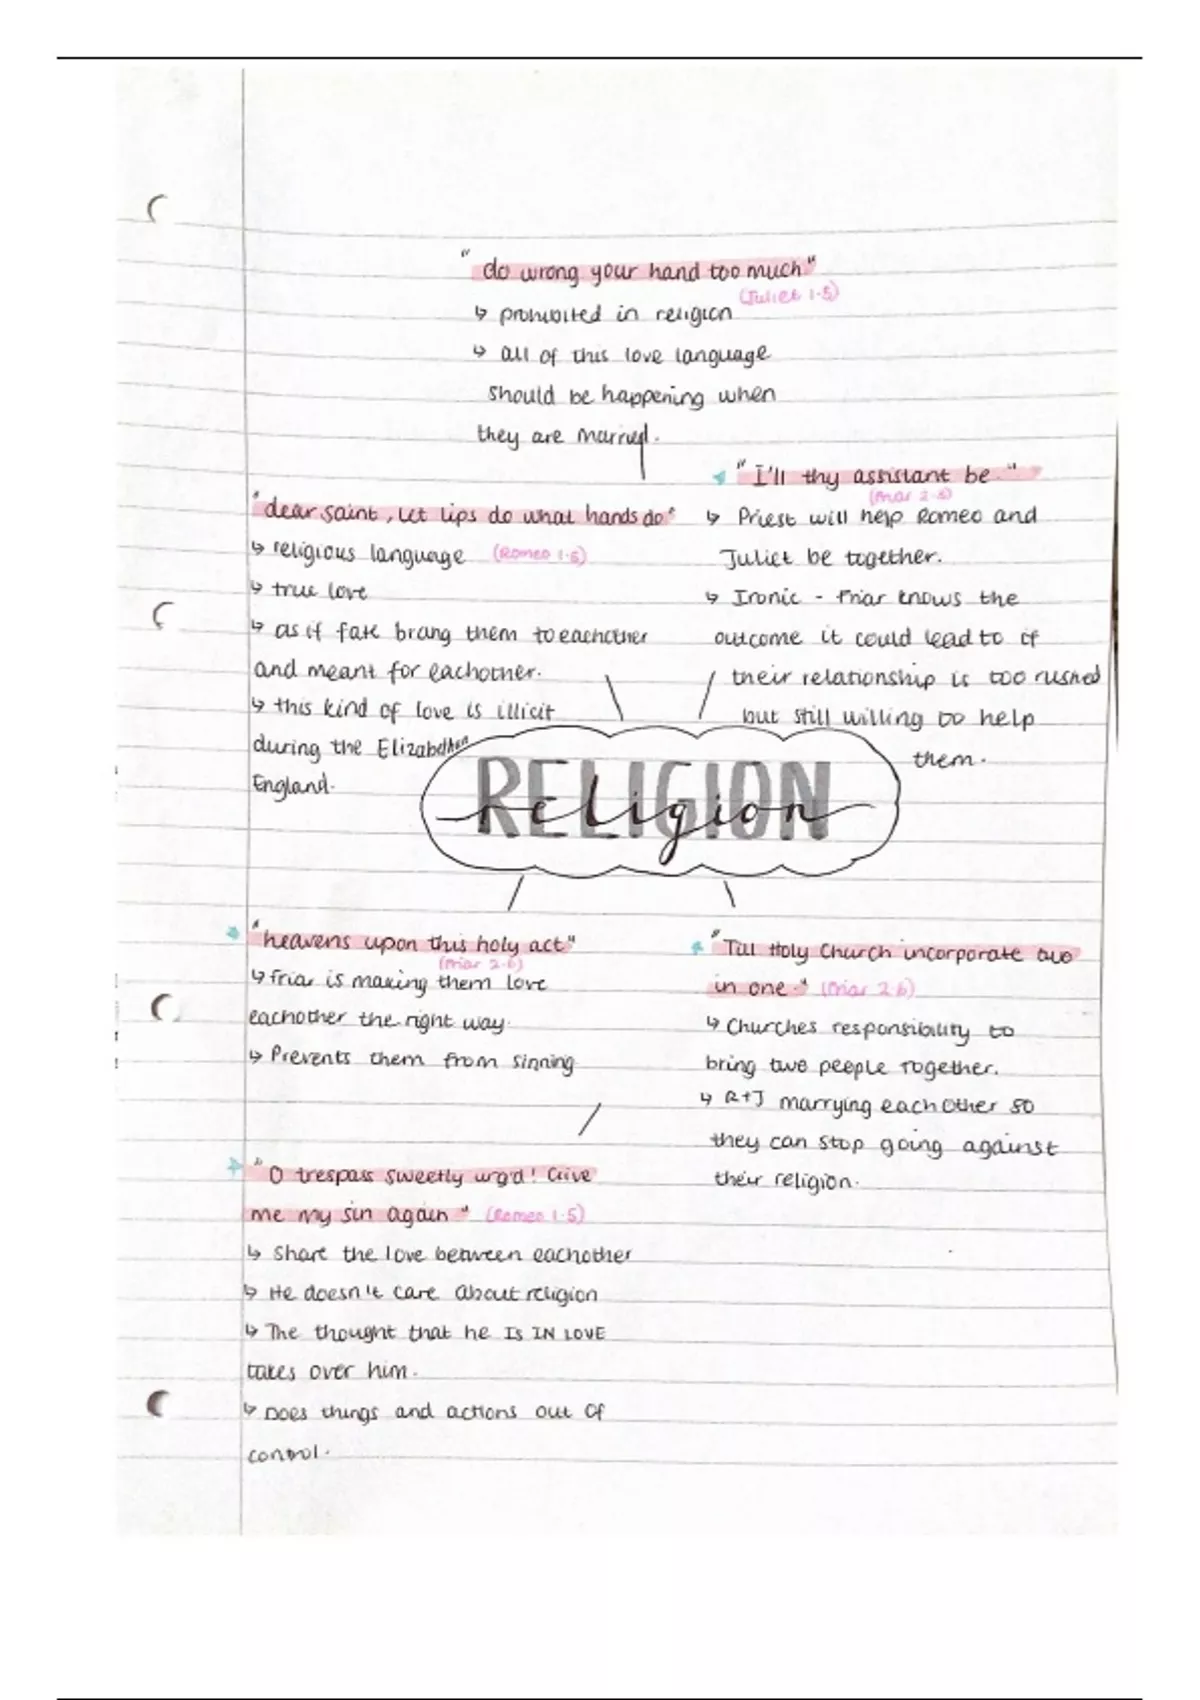 "do wrong your hand too much"
(Juliet 1.5)
↳ prohibited in religion
↳ all of this love language
should be happening when
they are married.
"dear saint, let lips do what hands do"
↳ religious language (Romeo 1.5)
↳ true love
↳ as if fate brang them to eachother
and meant for eachother.
↳ this kind of love is illicit
during the Elizabethan
England.
"I'll thy assistant be."
(Friar 2.3)
↳ Priest will help Romeo and
Juliet be together.
↳ Ironic - Friar knows the
outcome it could lead to if
their relationship is too rushed
but still willing to help
them.
RELIGION
religion
"heavens upon this holy act"
(Friar 2.6)
↳ friar is making them love
eachother the right way.
↳ Prevents them from sinning
"Till Holy Church incorporate two
in one." (Friar 2.6)
↳ Churches responsibility to
bring two people together.
↳ R+J marrying each other so
they can stop going against
their religion.
"O trespass sweetly urg'd! Give
me my sin again" (Romeo 1.5)
↳ Share the love between eachother
↳ He doesn't care about religion
↳ The thought that he IS IN LOVE
takes over him.
↳ Does things and actions out of
control.